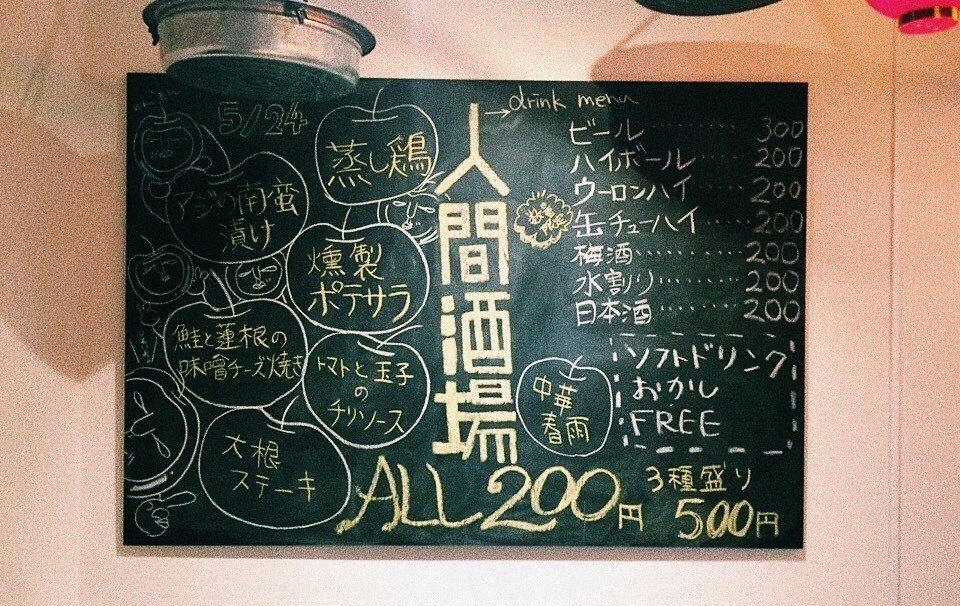 5/24
蒸し鶏
アジの南蛮
漬け
燻製
ポテサラ
鮭と蓮根の
味噌チーズ焼き
トマトと玉子
の
チリソース
大根
ステーキ
中華
春雨
人間酒場
ALL 200円
3種盛り
500円
→drink menu
ビール……300
ハイボール……200
ウーロンハイ……200
缶チューハイ……200
梅酒……200
水割り……200
日本酒……200
ソフトドリンク
おかし
FREE